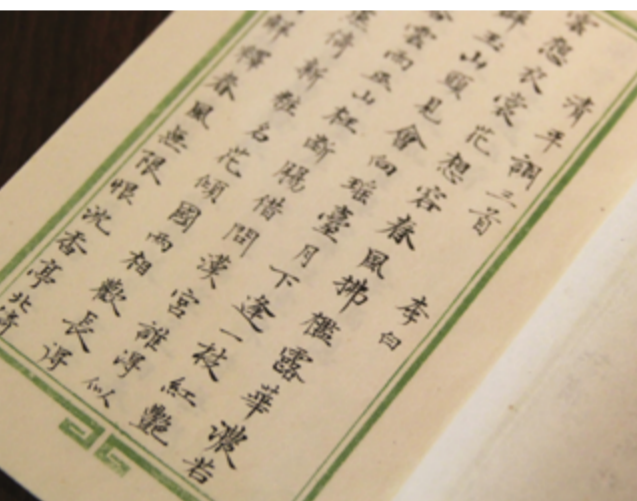 清平調三首 李白
雲想衣裳花想容春風拂檻露華濃若
玉山頭見會向瑤臺月下逢一枝紅艷
雲雨巫山枉斷腸借問漢宮誰得似
倚新粧名花傾國兩相歡長得
解釋春風無限恨沈香亭北倚